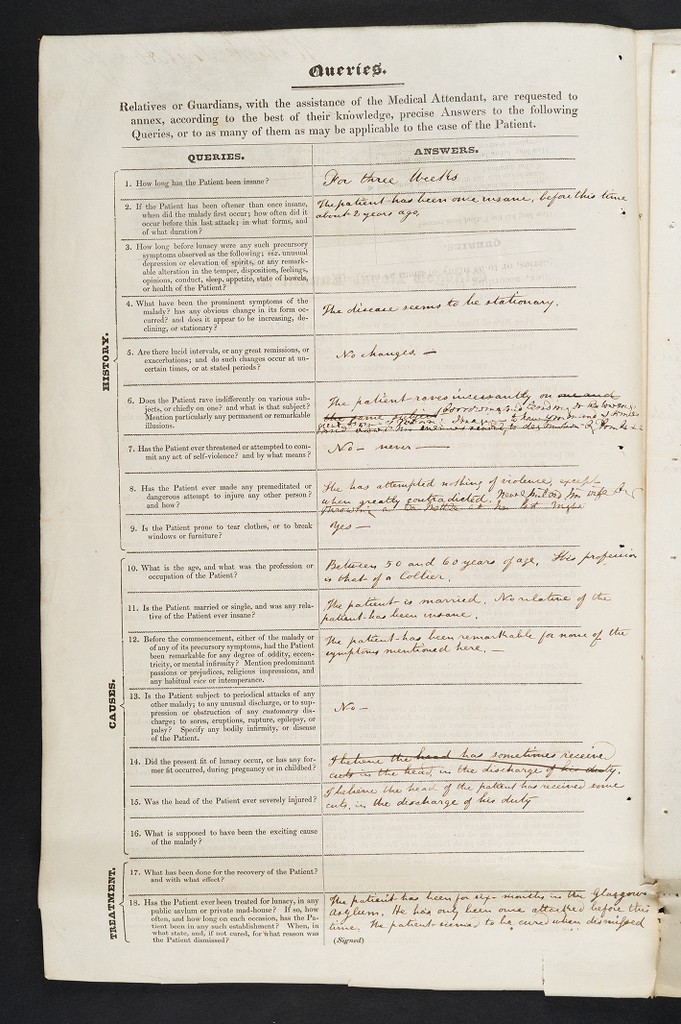 Queries.
Relatives or Guardians, with the assistance of the Medical Attendant, are requested to
annex, according to the best of their knowledge, precise Answers to the following
Queries, or to as many of them as may be applicable to the case of the Patient.
QUERIES.
ANSWERS.
HISTORY.
1. How long has the Patient been insane?
For three Weeks
2. If the Patient has been oftener than once insane,
when did the malady first occur; how often did it
occur before this last attack; in what forms, and
of what duration?
The patient has been once insane, before this time
about 2 years ago,
3. How long before lunacy were any such precursory
symptoms observed as the following; viz. unusual
depression or elevation of spirits, or any remark-
able alteration in the temper, disposition, feelings,
opinions, conduct, sleep, appetite, state of bowels,
or health of the Patient?
4. What have been the prominent symptoms of the
malady? has any obvious change in its form oc-
curred? and does it appear to be increasing, de-
clining, or stationary?
The disease seems to be stationary.
5. Are there lucid intervals, or any great remissions, or
exacerbations; and do such changes occur at un-
certain times, or at stated periods?
No changes. —
6. Does the Patient rave indifferently on various sub-
jects, or chiefly on one? and what is that subject?
Mention particularly any permanent or remarkable
illusions.
The patient raves incessantly on one and
the same subject
7. Has the Patient ever threatened or attempted to com-
mit any act of self-violence? and by what means?
No — never —
8. Has the Patient ever made any premeditated or
dangerous attempt to injure any other person?
and how?
He has attempted nothing of violence, except
when greatly contradicted. wife
at last night
9. Is the Patient prone to tear clothes, or to break
windows or furniture?
Yes —
CAUSES.
10. What is the age, and what was the profession or
occupation of the Patient?
Between 50 and 60 years of age. His profession
is that of a Collier.
11. Is the Patient married or single, and was any rela-
tive of the Patient ever insane?
The patient is married. No relative of the
patient has been insane.
12. Before the commencement, either of the malady or
of any of its precursory symptoms, had the Patient
been remarkable for any degree of oddity, eccen-
tricity, or mental infirmity? Mention predominant
passions or prejudices, religious impressions, and
any habitual vice or intemperance.
The patient has been remarkable for none of the
symptoms mentioned here. —
13. Is the Patient subject to periodical attacks of any
other malady; to any unusual discharge, or to sup-
pression or obstruction of any customary dis-
charge; to sores, eruptions, rupture, epilepsy, or
palsy? Specify any bodily infirmity, or disease
of the Patient.
No —
14. Did the present fit of lunacy occur, or has any for-
mer fit occurred, during pregnancy or in childbed?
I believe the head has sometimes receive
cuts in the head, in the discharge of his duty.
15. Was the head of the Patient ever severely injured?
I believe the head of the patient has received some
cuts, in the discharge of his duty
16. What is supposed to have been the exciting cause
of the malady?
TREATMENT.
17. What has been done for the recovery of the Patient?
and with what effect?
18. Has the Patient ever been treated for lunacy, in any
public asylum or private mad-house? If so, how
often, and how long on each occasion, has the Pa-
tient been in any such establishment? When, in
what state, and, if not cured, for what reason was
the Patient dismissed?
The patient has been for six months in the Glasgow
Asylum. He has only been once attacked before this
time. The patient seemed to be cured when dismissed
(Signed)